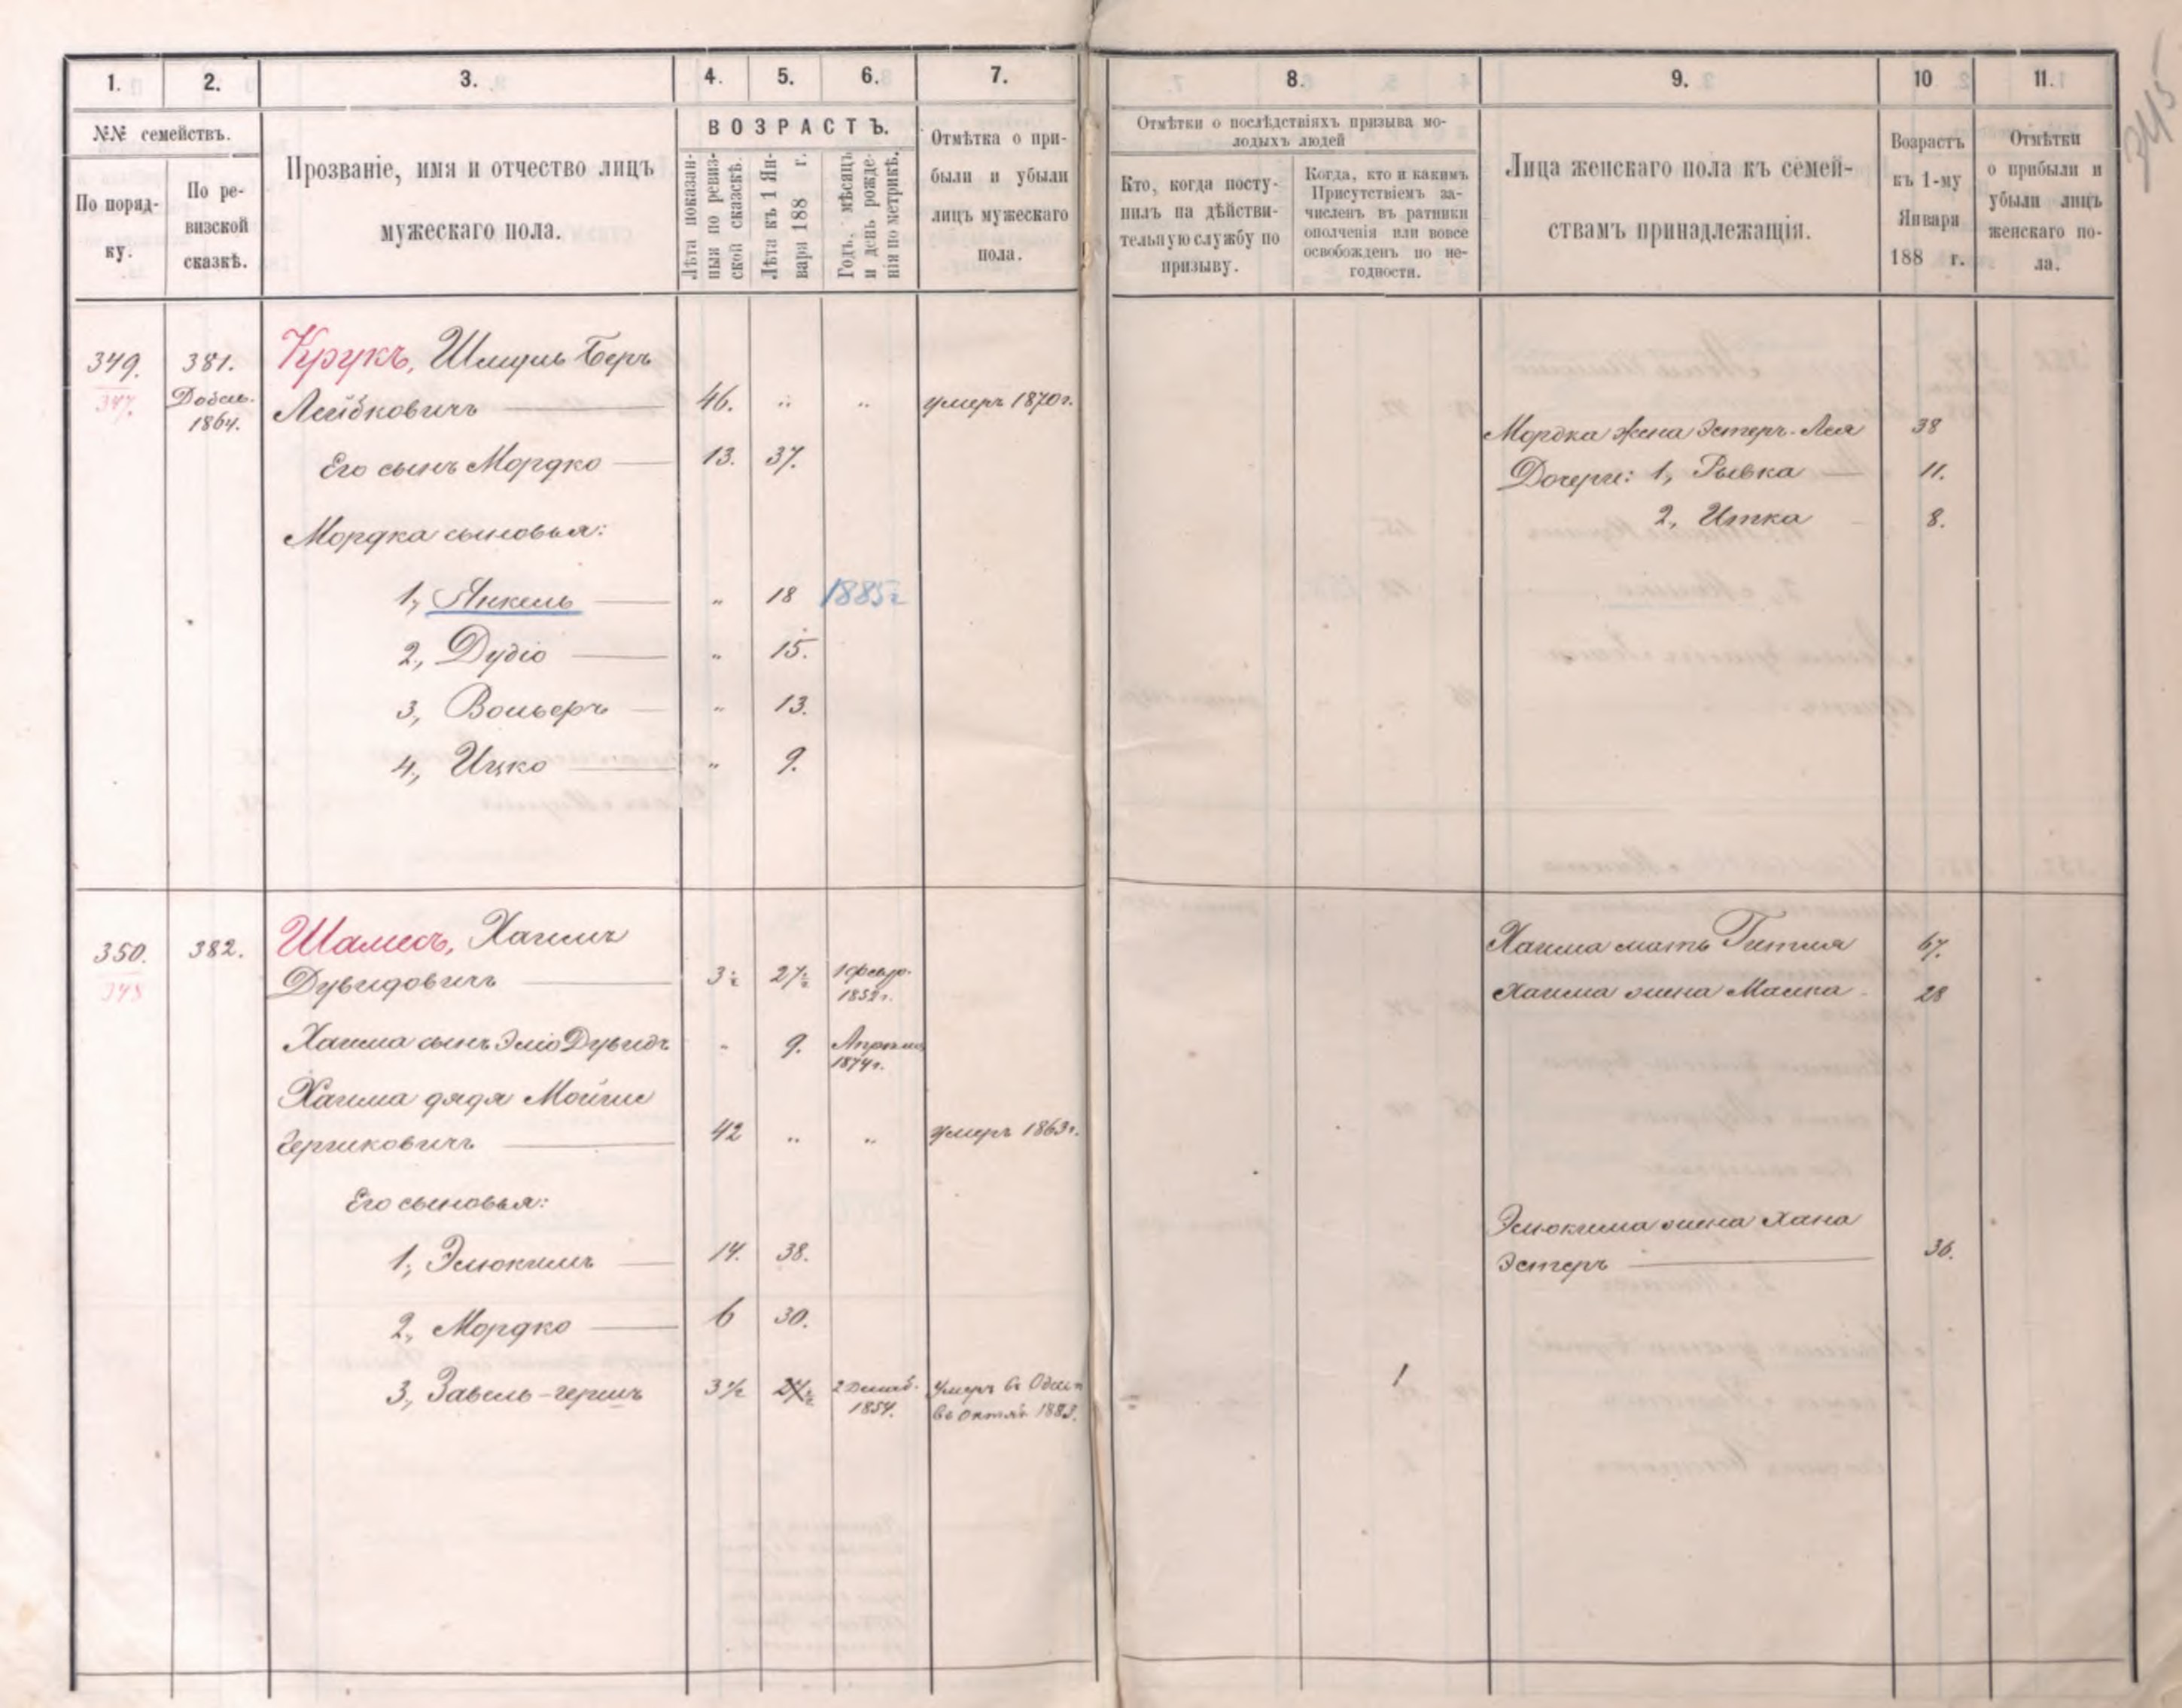 1. 2. 3. 4. 5. 6. 7. 8. 9. 10 11.
345
№№ семействъ.
По поряд-
ку.
По ре-
визской
сказкѣ.
Прозваніе, имя и отчество лицъ
мужескаго пола.
ВОЗРАСТЪ.
Лѣта показан-
ныя по ревиз-
ской сказкѣ.
Лѣта къ 1 Ян-
варя 188 г.
Годъ, мѣсяцъ
и день рожде-
нія по метрикѣ.
Отмѣтка о при-
были и убыли
лицъ мужескаго
пола.
Отмѣтки о послѣдствіяхъ призыва мо-
лодыхъ людей
Кто, когда посту-
пилъ на дѣйстви-
тельную службу по
призыву.
Когда, кто и какимъ
Присутствіемъ за-
численъ въ ратники
ополченія или вовсе
освобожденъ по не-
годности.
Лица женскаго пола къ семей-
ствамъ принадлежащія.
Возрастъ
къ 1-му
Января
188 г.
Отмѣтки
о прибыли и
убыли лицъ
женскаго по-
ла.
349. 381. Крукъ, Шмуль Беръ
347. Добав. 1864. Лейбковичъ 46. " " умеръ 1870 г.
Его сынъ Мордко 13. 37.
Мордка сыновья:
1, Янкель " 18 1885 г
2, Дудіо " 15.
3, Вольеръ " 13.
4, Ицко " 9.
Мордка жена Эстеръ-Лея 38
Дочери: 1, Рывка 11.
2, Итка 8.
350. 382. Шамесъ, Хаимъ
348 Дувидовичъ 3½ 27½ 1 февр. 1852 г.
Хаима сынъ Эліо Дувидъ " 9. Апрѣля 1874 г.
Хаима дядя Мойше
Гершковичъ 42 " " умеръ 1863 г.
Его сыновья:
1, Элюкимъ 14. 38.
2, Мордко 6 30.
3, Завель-гершъ 3½ 27½ 2 Декаб. 1854. Умеръ въ Одессѣ въ Октяб. 1883. 1
Хаима мать Гитля 67.
Хаима жена Малка 28
Элюкима жена Хана
Эстеръ 36.